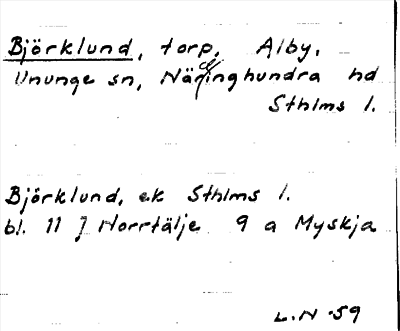 Björklund, torp, Alby,
Ununge sn, Närdinghundra hd
Sthlms l.
Björklund, ek Sthlms l.
bl. 11 J Norrtälje 9 a Myskja
L.N -59